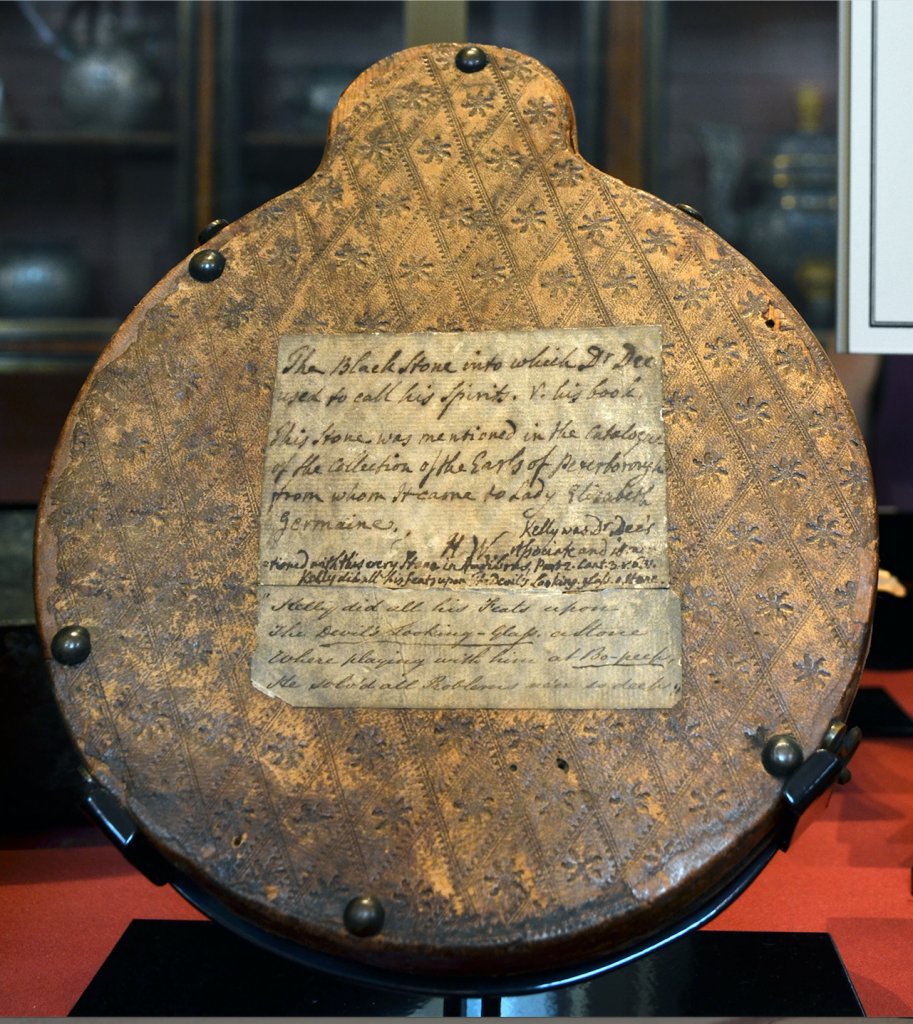 The Black Stone into which Dr Dee
used to call his Spirits. V. his book.
This Stone was mentioned in the Catalogue
of the Collection of the Earls of Peterborough
from whom It came to Lady Elizabeth
Germaine.
H W.
Kelly was Dr Dee's
Associate and is
-tioned with this very Stone in Hudibras, Part 2. Cant. 3. v.
Kelly did all his feats upon The Devil's Looking glass, a Stone.
"Kelly did all his Feats upon
The Devil's Looking-Glass, a Stone
Where playing with him at Bo-peep,
He solv'd all Problems ne'er so deep."